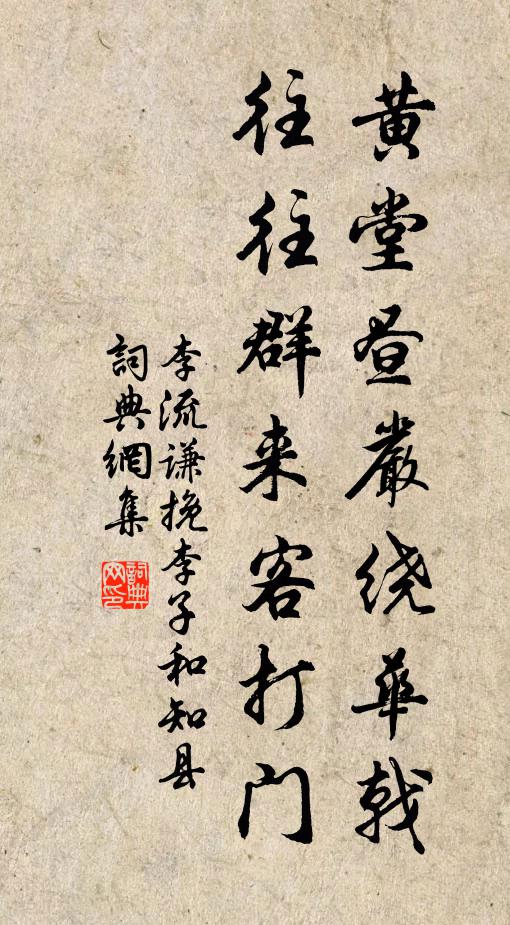 黄堂昼严绕华戟
往往群来客打门
李流谦挽李子和知县
詞典網集
詞典网印